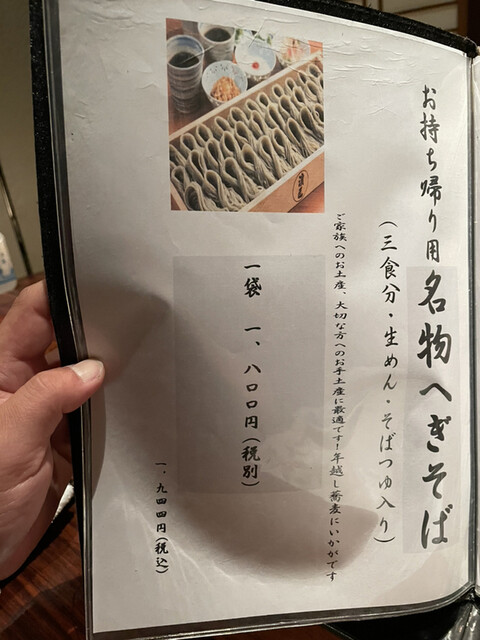 お持ち帰り用 名物へぎそば
（三食分・生めん・そばつゆ入り）
ご家族へのお土産、大切な方へのお手土産に最適です！年越し蕎麦にいかがです
一袋 一、八〇〇円（税別）
一、九四四円（税込）